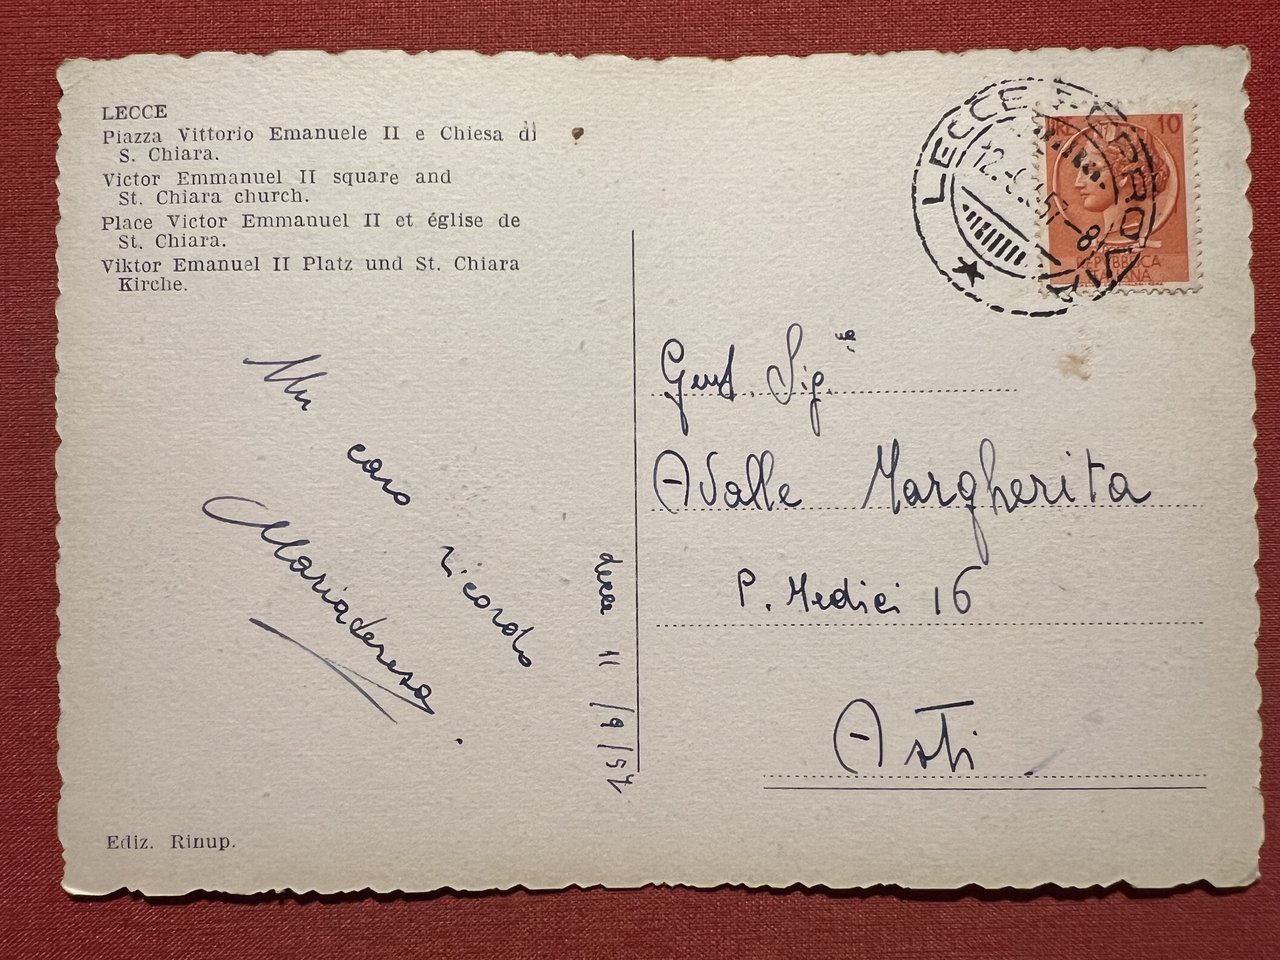 LECCE
Piazza Vittorio Emanuele II e Chiesa di
S. Chiara.
Victor Emmanuel II square and
St. Chiara church.
Place Victor Emmanuel II et église de
St. Chiara.
Viktor Emanuel II Platz und St. Chiara
Kirche.
Un
caro
ricordo
Mariateresa
Lecce 11/9/57
Ediz. Rinup.
LECCE FERROVIA
12.-9.57-8
LIRE 10
REPUBBLICA
ITALIANA
Gent. Sig.na
Avalle Margherita
P. Medici 16
Asti